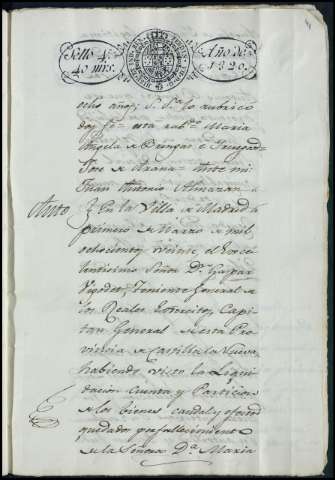 Sello 4º
40 mrs.
Año de
1820.
ocho años; S. Sª. lo rubricó
doy fe= esta rubª. María
Angela de
Jose de Arana= Ante mi
Juan Antonio Almazan
Auto
En la Villa de Madrid á
primero de Marzo de mil
ochocientos veinte el Exce
lentisimo Señor Dn. Gaspar
Vigodet, Teniente General de
los Reales Exercitos, Capi
tan General de esta Pro
vincia de Castilla la Nueva,
habiendo visto la Liqui
dacion Cuenta y Particion
de los bienes caudal y efectos
quedados por fallecimiento
de la Señora Dª. Maria